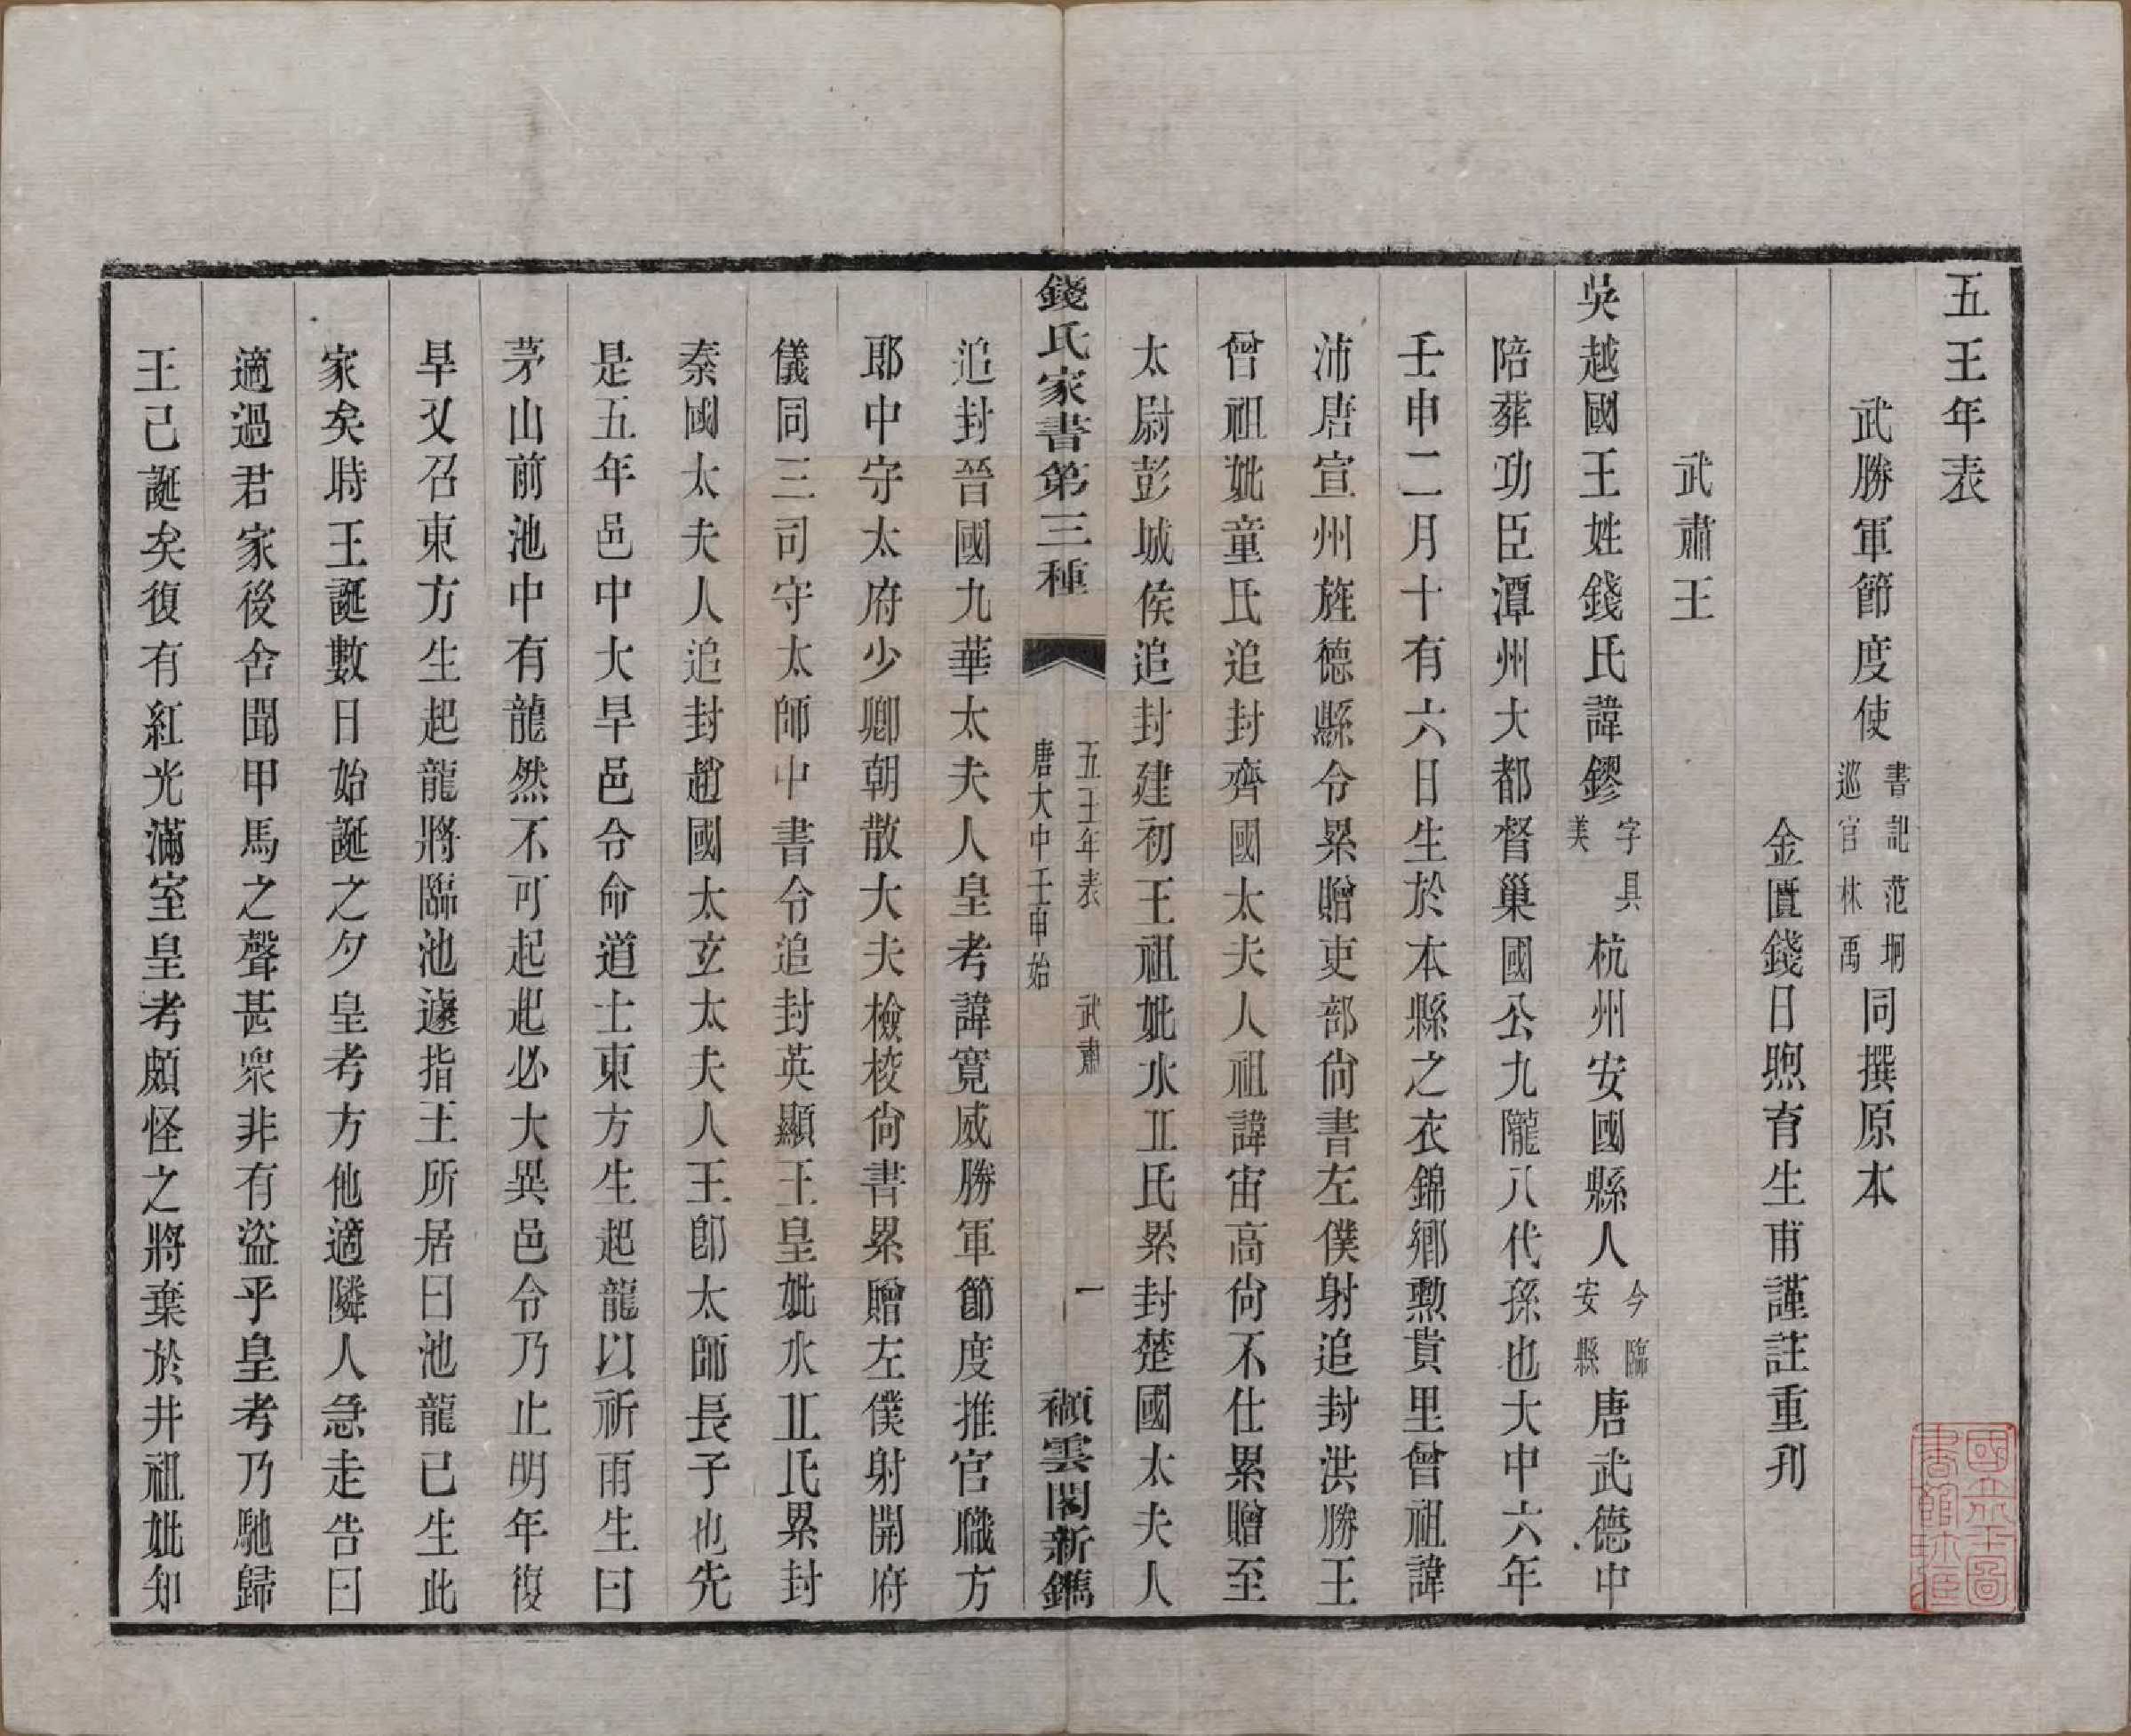 五王年表
武勝軍節度使書記范坰巡官林禹同撰原本
金匱錢日煦育生甫謹註重刋
武肅王
吳越國王姓錢氏諱鏐字具美杭州安國縣人今臨安縣唐武德中
陪葬功臣潭州大都督巢國公九隴八代孫也大中六年
壬申二月十有六日生於本縣之衣錦鄉勲貴里曾祖諱
沛唐宣州旌德縣令累贈吏部尙書左僕射追封洪勝王
曾祖妣童氏追封齊國太夫人祖諱宙高尙不仕累贈至
太尉彭城侯追封建初王祖妣水丘氏累封楚國太夫人
錢氏家書第三種
五王年表 武肅
唐大中壬申始
一
纈雲閣新鐫
追封晉國九華太夫人皇考諱寬威勝軍節度推官職方
郎中守太府少卿朝散大夫檢校尙書累贈左僕射開府
儀同三司守太師中書令追封英顯王皇妣水丘氏累封
秦國太夫人追封趙國太玄太夫人王卽太師長子也先
是五年邑中大旱邑令命道士東方生起龍以祈雨生曰
茅山前池中有龍然不可起起必大異邑令乃止明年復
旱又召東方生起龍將臨池遽指王所居曰池龍已生此
家矣時王誕數日始誕之夕皇考方他適隣人急走告曰
適過君家後舍聞甲馬之聲甚衆非有盜乎皇考乃馳歸
王已誕矣復有紅光滿室皇考頗怪之將棄於井祖妣知
國立北平圖書館珍藏